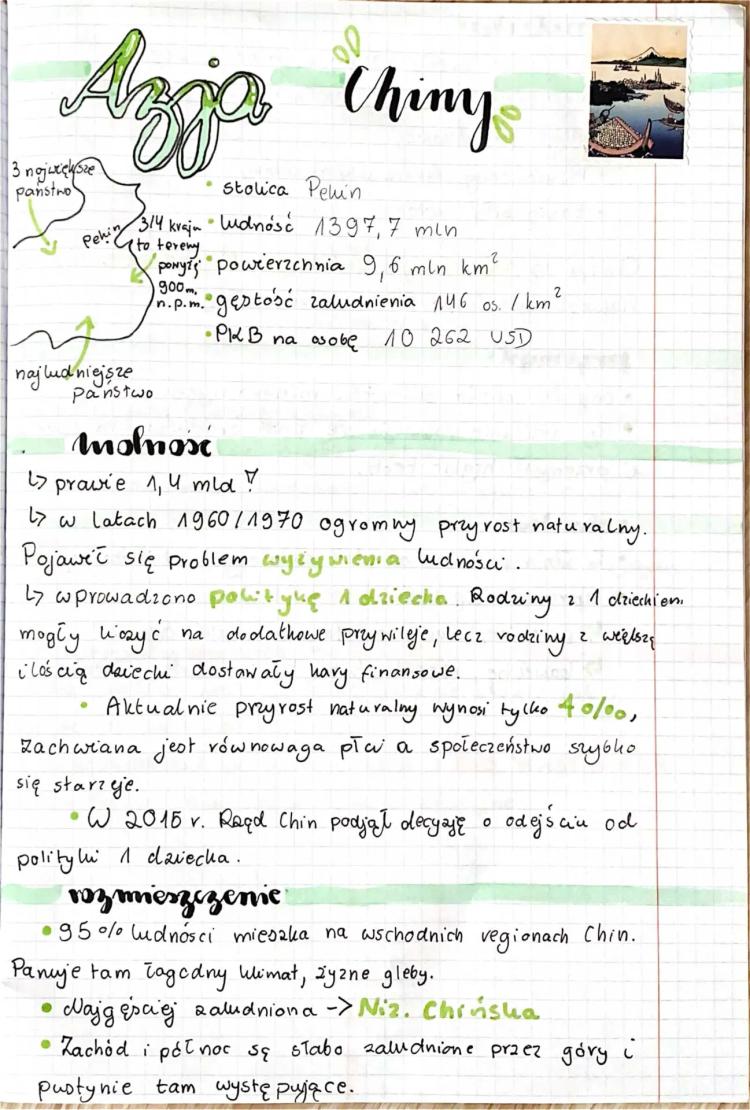 Azja Chiny
3 największe
państwo
Pekin
3/4 kraju
to tereny
powyżej
900m.
n.p.m.
najludniejsze
państwo
• stolica Pekin
• ludność 1397,7 mln
• powierzchnia 9,6 mln km²
• gęstość zaludnienia 146 os. / km²
• PKB na osobę 10 262 USD
ludność
↳ prawie 1,4 mld !
↳ w latach 1960/1970 ogromny przyrost naturalny.
Pojawił się problem wyżywienia ludności.
↳ wprowadzono politykę 1 dziecka. Rodziny z 1 dzieckiem
mogły liczyć na dodatkowe przywileje, lecz rodziny z większą
ilością dziecki dostawały kary finansowe.
• Aktualnie przyrost naturalny wynosi tylko 4 o/oo,
zachwiana jest równowaga płci a społeczeństwo szybko
się starzeje.
• W 2015 r. Rząd Chin podjął decyzję o odejściu od
polityki 1 dziecka.
rozmieszczenie
• 95 % ludności mieszka na wschodnich regionach Chin.
Panuje tam łagodny klimat, żyzne gleby.
• Najgęściej zaludniona -> Niz. Chińska
• Zachód i północ są słabo zaludnione przez góry i
pustynie tam występujące.